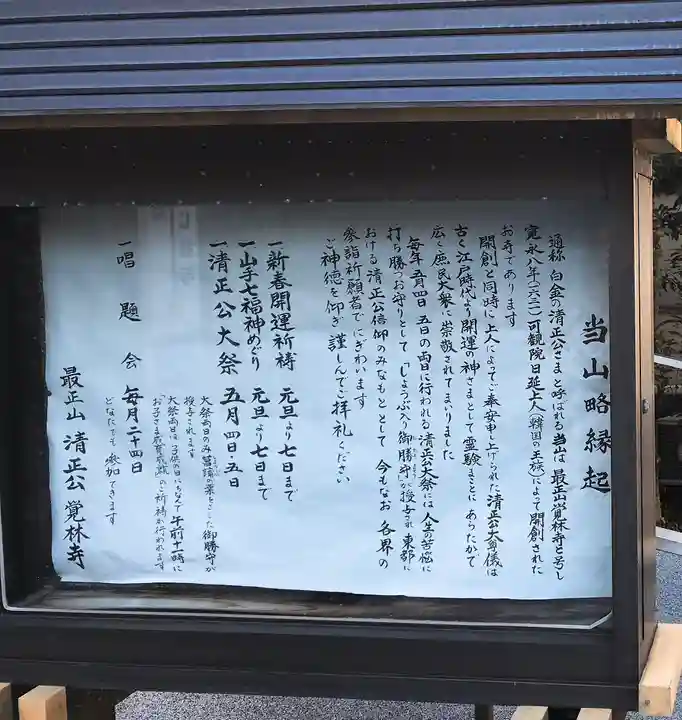 当山略縁起
通称 白金の清正公さまと呼ばれる当山は 最正山覚林寺と号し
寛永八年(一六三一)可観院日延上人(韓国の王族)によって開創された
お寺であります
開創と同時に上人によってご奉安申し上げられた清正公大尊儀は
古く江戸時代より開運の神さまとして霊験まことに あらたかで
広く庶民大衆に崇敬されてまいりました
毎年 五月四日 五日の両日に行われる清正公大祭には 人生の苦悩に
打ち勝つお守りとして 「しょうぶ入り御勝守」が授与され 東都に
おける清正公信仰のみなもととして 今もなお 各界の
参詣祈願者でにぎわいます
ご神徳を仰ぎ 謹しんでご拝礼ください
一新春開運祈祷 元旦より七日まで
一山手七福神めぐり 元旦より七日まで
一清正公大祭 五月四日・五日
大祭両日のみ菖蒲の葉の入った御勝守が
授与されます
大祭両日は 子供の日にちなんで 午前十一時に
お子さま成育成就のご祈祷が行われます
一唱題会 毎月二十四日
どなたでも参加できます
最正山 清正公 覚林寺